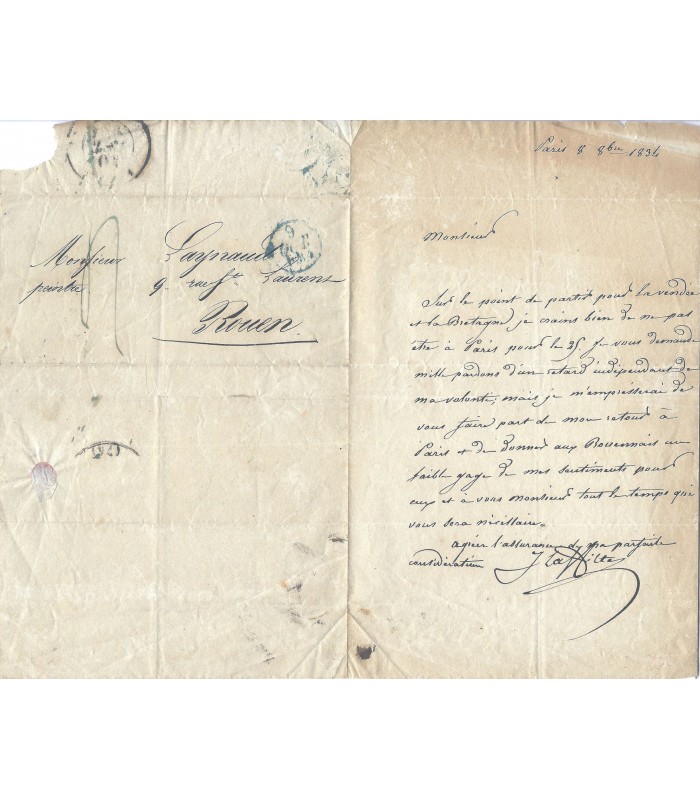 Monsieur
peintre
Laynaud
9. rue St. Laurent
Rouen.
4
9
Paris 8 8bre 1834
Monsieur
Sur le point de partir pour la vendée
et la Bretagne je crains bien de ne pas
être à Paris pour le 25. Je vous demande
mille pardons d'un retard indépendant de
ma volonté, mais je m'empresserai de
vous faire part de mon retour à
Paris & de donner aux Rouennais un
faible gage de mes sentiments pour
eux et à vous Monsieur tout le temps que
vous sera nécessaire.
agréer l'assurance de ma parfaite
considération J Laffitte